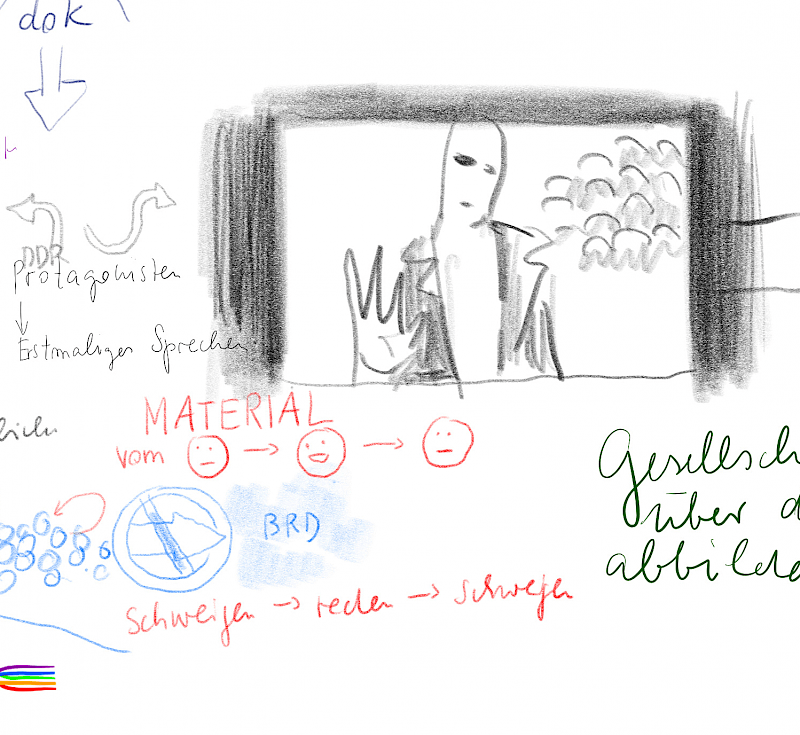 dok
DDR
Protagonisten
Erstmaliges Sprechen
MATERIAL
vom
BRD
Schweigen → reden → schweigen
Gesellsch
über d
abbild